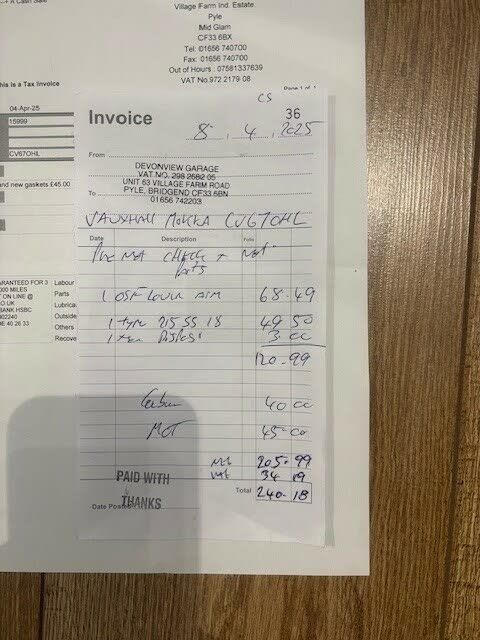 Village Farm Ind. Estate
Pyle
Mid Glam
CF33 6BX
Tel: 01656 740700
Fax: 01656 740700
Out of Hours : 07581337639
VAT No.972 2179 08
his is a Tax Invoice
Page 1 of 1
04-Apr-25
15999
CV67OHL
and new gaskets £45.00
ARANTEED FOR 3
000 MILES
T ON LINE @
O.UK
BANK HSBC
402240
DE 40 26 33
Labour
Parts
Lubrica
Outside
Others
Recove
CS
Invoice 36
8 . 4 . 2025
From
DEVONVIEW GARAGE
VAT NO. 298 2682 05
UNIT 63 VILLAGE FARM ROAD
To PYLE, BRIDGEND CF33 6BN
01656 742203
VAUXHALL MOKKA CV67OHL
Date Description Folio
Pre MOT check + MOT
Parts
1 OSF Lower Arm 68.49
1 tyre 215 55 18 49 50
1 tyre 3.00
120.99
Labour 40 00
MOT 45-00
Net 205.99
VAT 34 19
Total 240.18
PAID WITH
THANKS
Date Posted